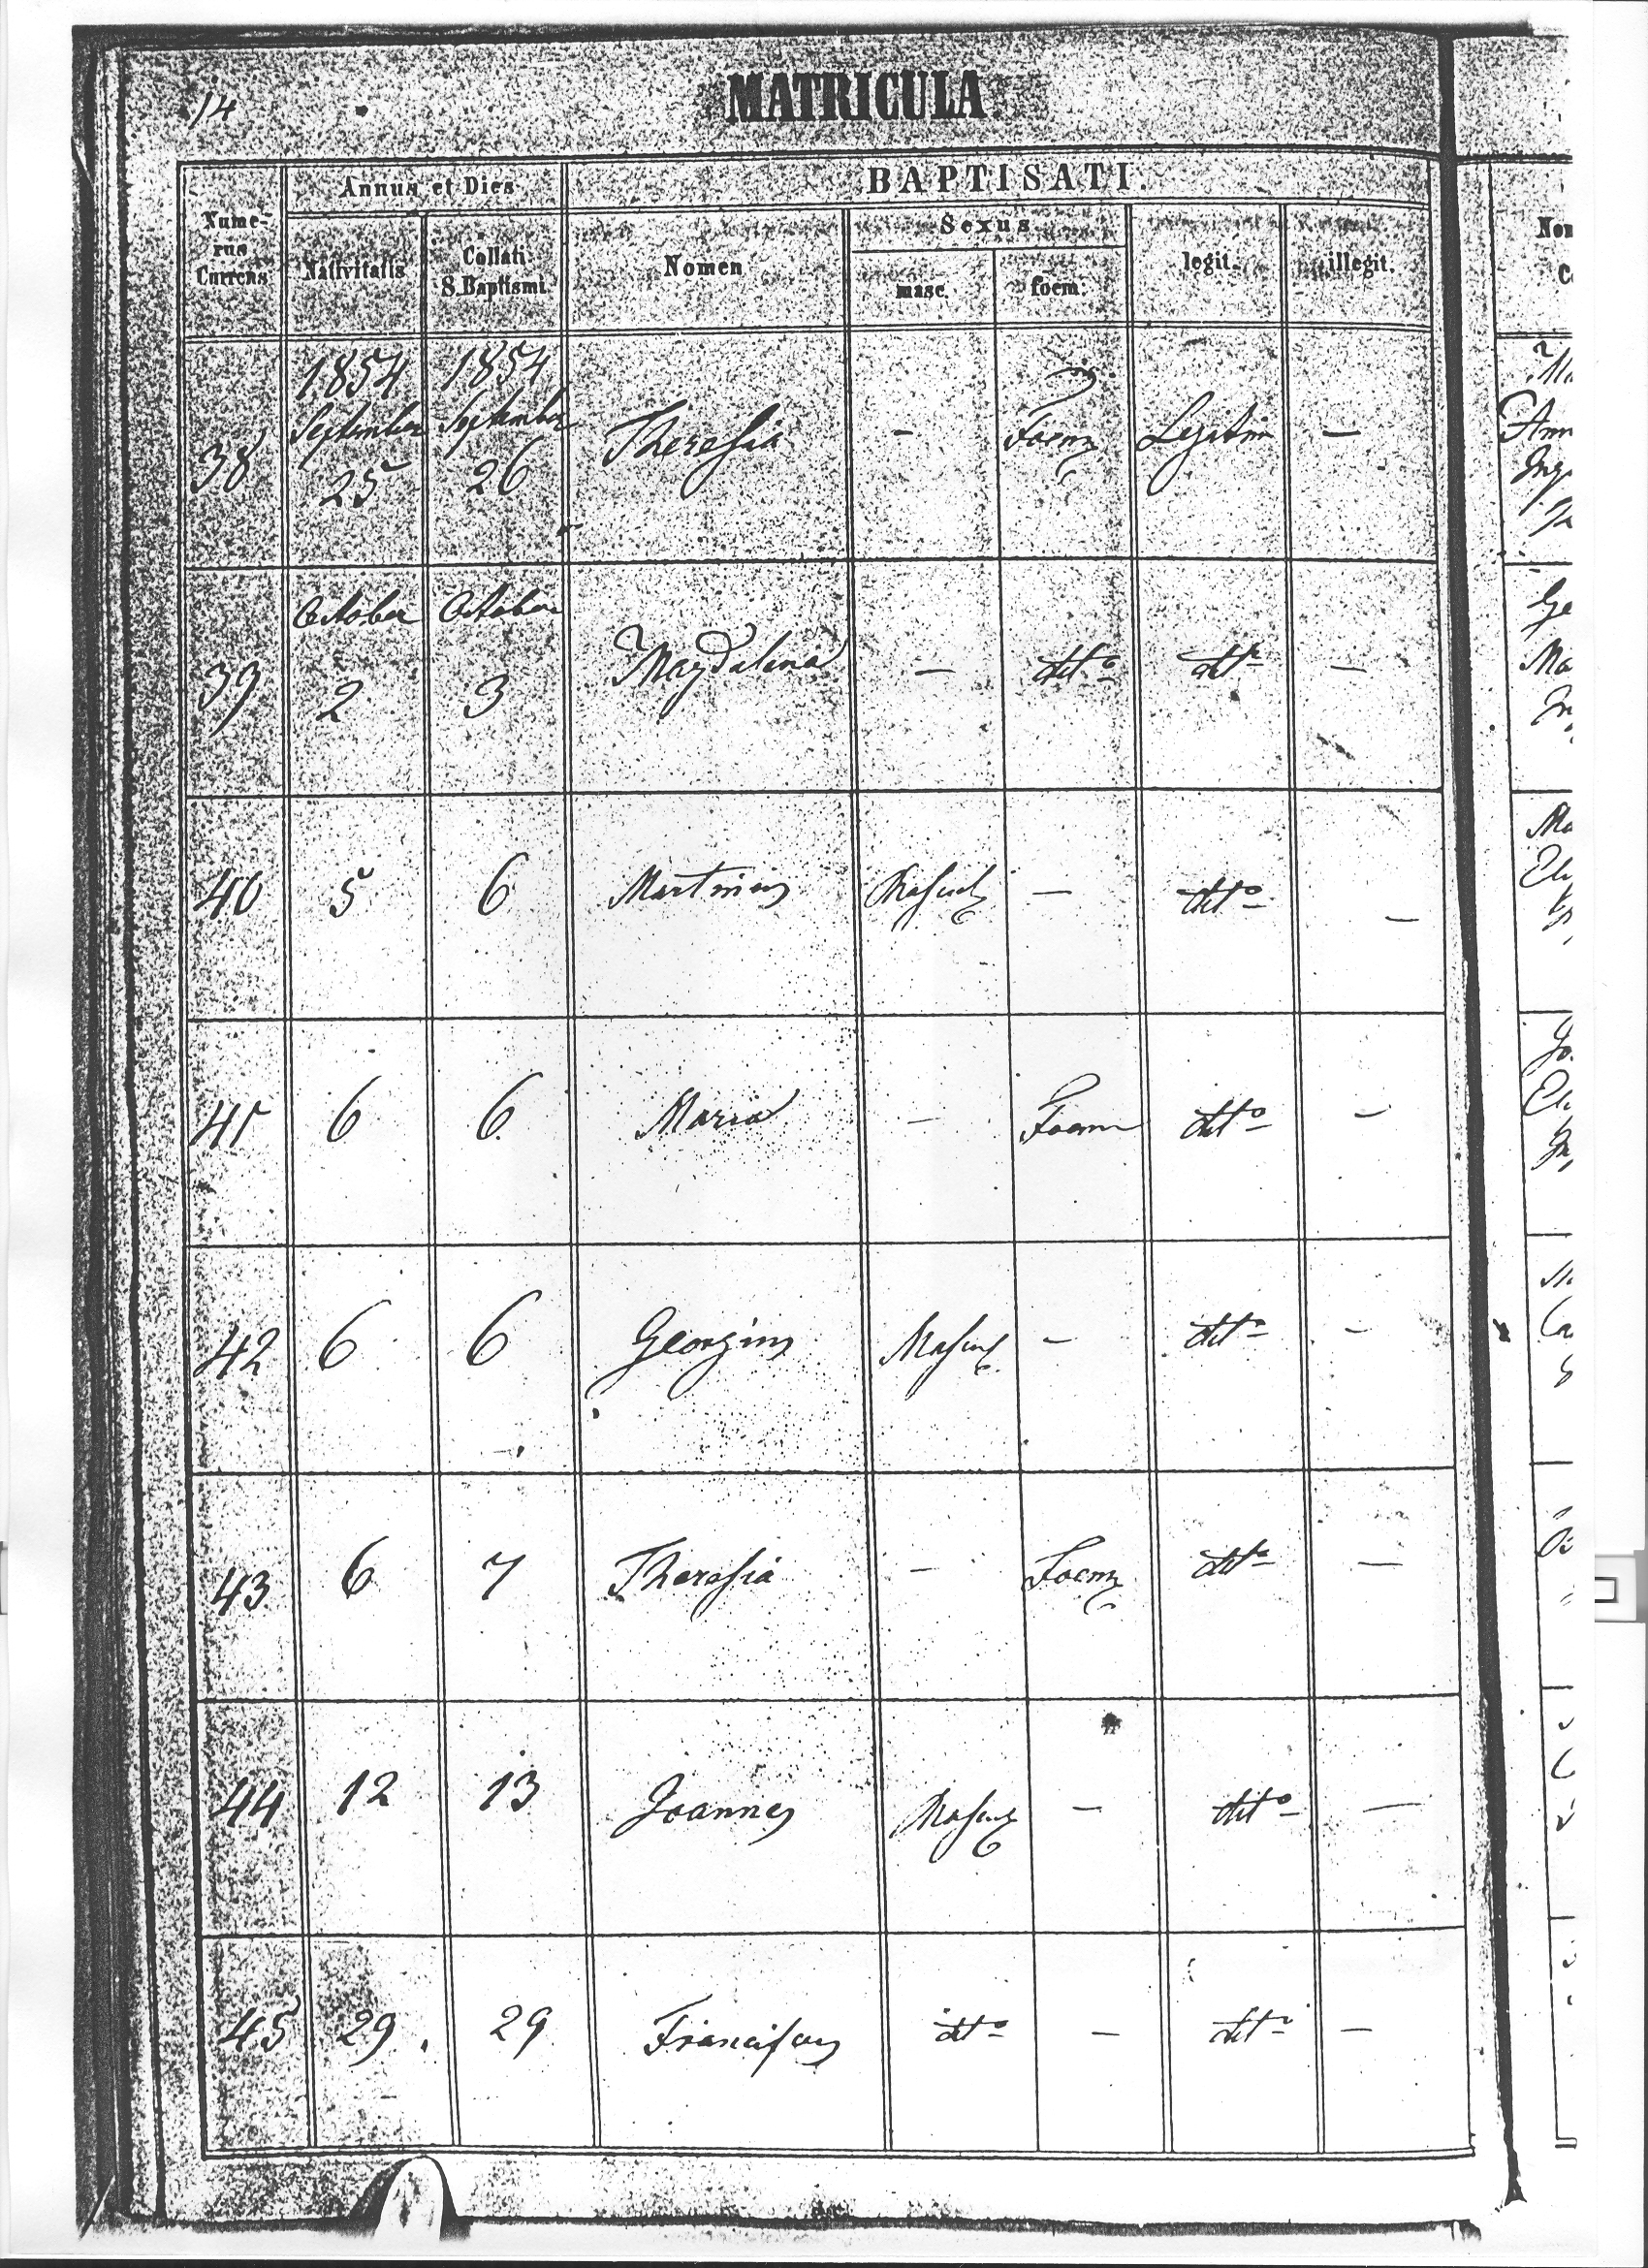 14
MATRICULA.
Nume-
rus
Currens
Annus et Dies
Nativitatis
Collati
S. Baptismi
BAPTISATI.
Nomen
Sexus
masc.
foem.
legit.
illegit.
38
1854
September
25
1854
September
26
Theresia
-
Foem
Legitim
-
39
October
2
October
3
Magdalena
-
ditº
ditº
-
40
5
6
Martinus
Mascul
-
ditº
-
41
6
6
Maria
-
Foem
ditº
-
42
6
6
Georgius
Mascul
-
ditº
-
43
6
7
Theresia
-
Foem
ditº
-
44
12
13
Joannes
Mascul
-
ditº
-
45
29
29
Franciscus
ditº
-
ditº
-